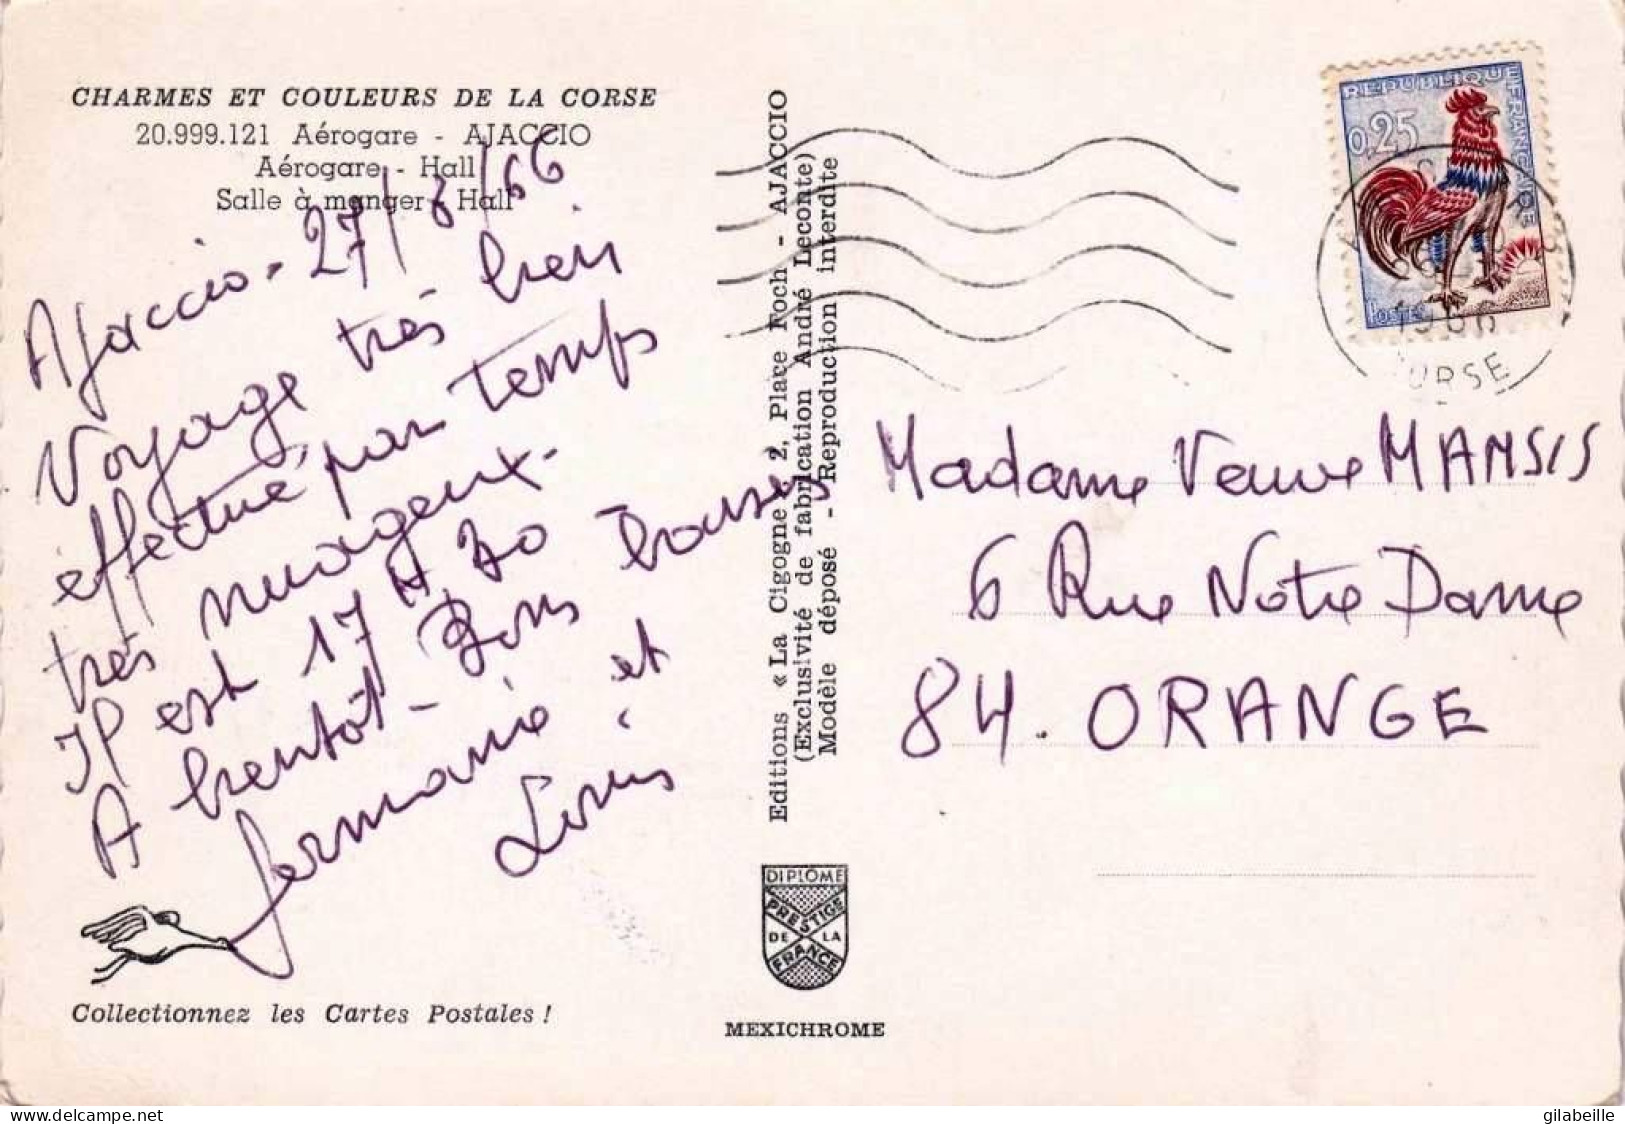 CHARMES ET COULEURS DE LA CORSE
20.999.121 Aérogare - AJACCIO
Aérogare - Hall
Salle à manger - Hall
Ajaccio - 27/8/66
Voyage très bien
effectué, par temps
très nuageux.
Il est 17 H 30
A bientôt - Bons baisers
germanie et
Louis
Collectionnez les Cartes Postales !
Editions « La Cigogne », 2, Place Foch - AJACCIO
(Exclusivité de fabrication André Leconte)
Modèle déposé - Reproduction interdite
DIPLOME
PRESTIGE
DE LA
FRANCE
MEXICHROME
REPUBLIQUE FRANÇAISE
0,25
POSTES
1966
CORSE
Madame Veuve MANSIS
6 Rue Notre Dame
84. ORANGE
www.delcampe.net
gilabeille